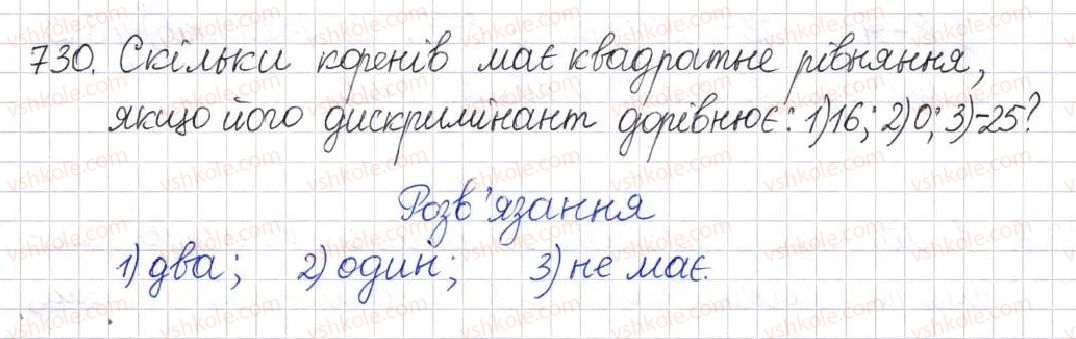 730. Скільки коренів має квадратне рівняння,
якщо його дискримінант дорівнює: 1)16; 2)0; 3)-25?
Розв'язання
1) два; 2) один; 3) не має.